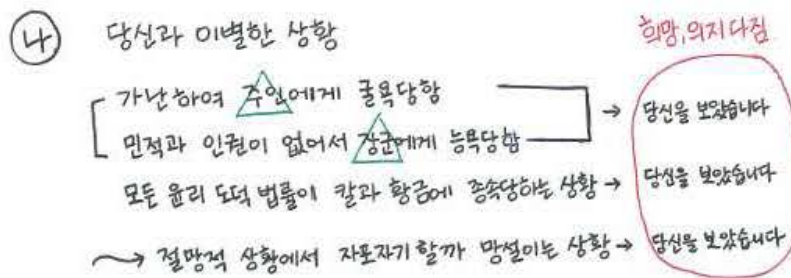 ㉯ 당신과 이별한 상황
희망, 의지 다짐
가난하여 주인에게 굴욕당함
민적과 인권이 없어서 장군에게 능욕당함
→ 당신을 보았습니다
모든 윤리 도덕 법률이 칼과 황금에 종속당하는 상황 → 당신을 보았습니다
절망적 상황에서 자포자기할까 망설이는 상황 → 당신을 보았습니다